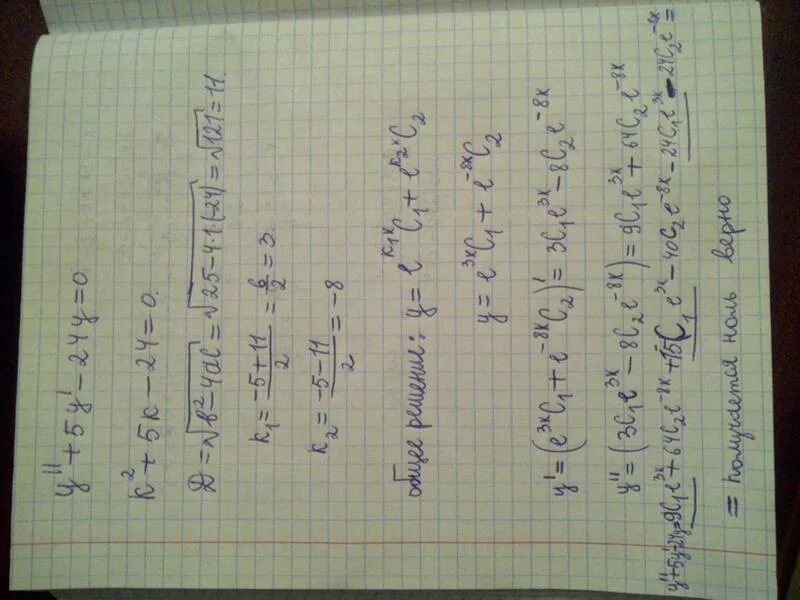 y'' + 5y' - 24y = 0
k² + 5k - 24 = 0.
D = √(b² - 4ac) = √(25 - 4·1·(-24)) = √121 = 11.
k₁ = (-5 + 11)/2 = 6/2 = 3.
k₂ = (-5 - 11)/2 = -8
общее решение: y = e^(k₁x) C₁ + e^(k₂x) C₂
y = e^(3x) C₁ + e^(-8x) C₂
y' = (e^(3x) C₁ + e^(-8x) C₂)' = 3C₁e^(3x) - 8C₂e^(-8x)
y'' = (3C₁e^(3x) - 8C₂e^(-8x)) = 9C₁e^(3x) + 64C₂e^(-8x)
y'' + 5y' - 24y = 9C₁e^(3x) + 64C₂e^(-8x) + 15C₁e^(3x) - 40C₂e^(-8x) - 24C₁e^(3x) - 24C₂e^(-8x) =
= получается ноль верно